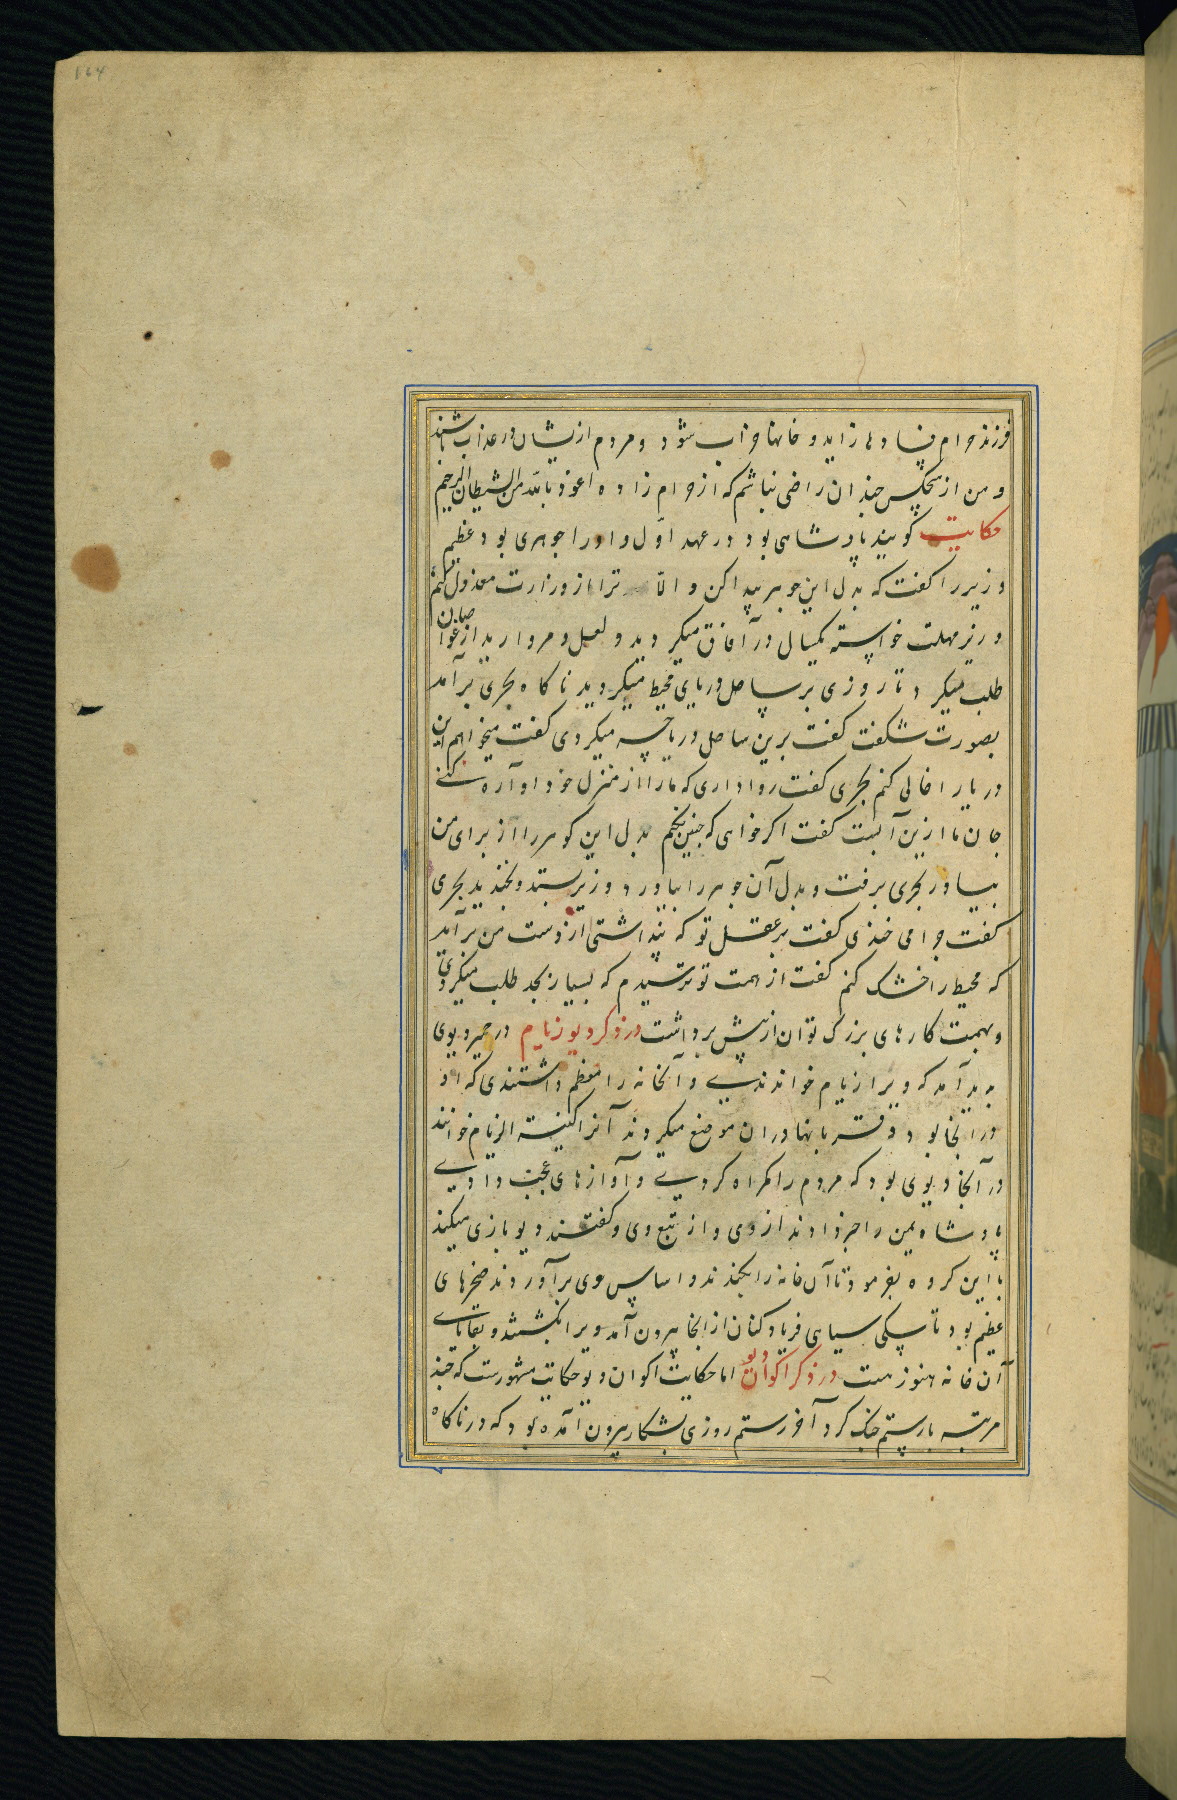 164
فرزند حرام فسادها زاید و خانها خراب شود و مردم ازیشان در عذاب باشند
و من از هیچکس چندان راضی نباشم که از حرام زاده اعوذ بالله من الشیطان الرجیم
حکایت کویند پادشاهی بود در عهد اول و او را جوهری بود عظیم
وزیر را کفت که بدل این جوهر پیدا کن و الا ترا از وزارت معزول کنم
وزیر مهلت خواسته یکسال در آفاق میکردید و لعل و مروارید از غواصان
طلب میکرد تا روزی بر ساحل دریای محیط میکردید ناکاه بحری برآمد
بصورت شکفت کفت برین ساحل دریا چه میکردی کفت میخواهم این
دریا را خالی کنم بحری کفت روا داری که ما را از منزل خود آواره کنی
جان ما ازین آبست کفت اکر خواهی که چنین نکنم بدل این کوهر را از برای من
بیاور بحری برفت و بدل آن جوهر را بیاورد وزیر بستد و بخندید بحری
کفت چرا می خندی کفت بر عقل تو که پنداشتی از دست من برآید
که محیط را خشک کنم کفت از همت تو ترسیدم که بسیار بجد طلب میکردی
و بهمت کارهای بزرک توان از پیش برداشت در ذکر دیو زیام در حمیر دیوی
پدید آمد که ویرا زیام خواندندی و آنخانه را معظم داشتندی که او
در آنجا بود و قربانها در آن موضع میکردند آنرا کنیسة الزیام خوانند
در آنجا دیوی بود که مردم را کمراه کردی و آوازهای عجب دادی
پادشاه یمن را خبر دادند از وی و از تبع وی و کفتند دیو بازی میکند
با این کروه بفرمود تا آن خانه را بکندند و اساس وی برآوردند صخرهای
عظیم بود تا سکی سیاهی فریاد کنان از آنجا بیرون آمد ویرا بکشتند و بقایای
آن خانه هنوز هست در ذکر اکوان دیو اما حکایت اکوان دیو حکایت مشهورست که چند
مرتبه با رستم جنک کرد آخر رستم روزی بشکار بیرون آمده بود که در ناکاه